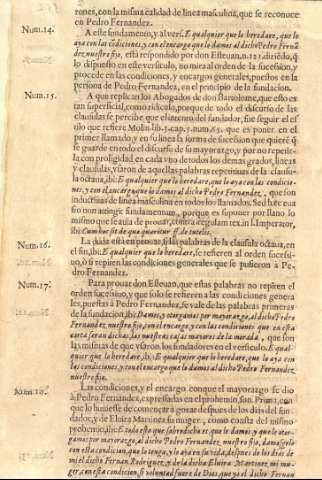 rones, con la misma calidad de linea masculina, que se reconoce
en Pedro Fernandez.
Num.14. A este fundamento, y al vers. E qualquier que lo heredare, que lo
aya con las cõdiciones, y con el encargo que lo damos al dicho Pedro Fernã
dez, nuestro fijo, està respondido por don Esteuan, n.121. diziẽdo, q̃
lo dispuesto en este versiculo, no mira al orden de la sucession, y
procede en las condiciones, y encargos generales, puestos en la
persona de Pedro Fernandez, en el principio de la fundacion.
Num.15. A que replican los Abogados de don Bartolome, que esto es
tan superficial, como ridiculo, porque de todo el discurso de las
clausulas se percibe que el intento del fundador, fue seguir el es
tilo que refiere Molin. lib.3. cap.5. num.63. que es poner en el
primer llamado, y en su linea la forma de sucession que quiere q̃
se guarde en todo el discurso de su mayorazgo, y por no repetir-
la con prolixidad en cada vno de todos los demas grados, lineas
y clausulas, vsaron de aquellas palabras repetiuas de la clausu-
la octaua, ibi: E qualquier que lo heredare, que lo aya con las condicio-
nes, y con el encargo que lo damos al dicho Pedro Fernandez, que son
inductiuas de linea masculina en todos los llamados. Sed hæc eua
sio non attingit fundamentum, porque es suponer por llano lo
mismo que se auia de prouar, contra regulam tex. in l. Imperator,
ibi: Cum hoc sit de quo quæritur ff. de tutelis.
Num.16. La duda està en prouar, si las palabras de la clausula octaua, en
el fin, ibi: E qualquier que lo heredare, se refieren al orden sucessi-
uo, ò si repiten las condiciones generales que se pusieron à Pe-
dro Fernandez.
Num.17. Para prouar don Esteuan, que estas palabras no repiten el
orden sucessiuo, y que solo se refieren à las condiciones genera
les, puestas à Pedro Fernandez, se vale de las palabras primeras
de la fundacion, ibi: Damos, y otorgamos por mayorazgo, al dicho Pedro
Fernandez nuestro fijo, con el encargo, y con las condiciones que en esta
carta seran dichas, las nuestras casas mayores de la morada, que son
las mismas de que vsaron los fundadores en el versiculo. E qual-
quier que lo heredare, ibi: E qualquier que lo heredare, que lo aya con
las condiciones, y con el encargo que lo damos al dicho Pedro Fernandez
nuestro fijo.
Num.18. Las condiciones, y el encargo conque el mayorazgo se dio
à Pedro Fernandez, expressadas en el prohemio, son. Prima, con
que lo huuiesse de començar à gozar despues de los dias del fun-
dador, y de Eluira Martinez su muger, como consta del mismo
prohemio, ibi: E todo esto que sobredicho es que le damos, y que le otor-
gamos por mayorazgo, al dicho Pedro Fernandez, nuestro fijo, damoselo
con esta condicion, que lo tenga, y lo aya en su vida, despues de los dias de
mi el dicho Fernan Rodriguez, y de la dicha Eluira Martinez, mi mu-
ger, con esta condicion, si voluntad fuere de Dios, que ya el dicho Pedro